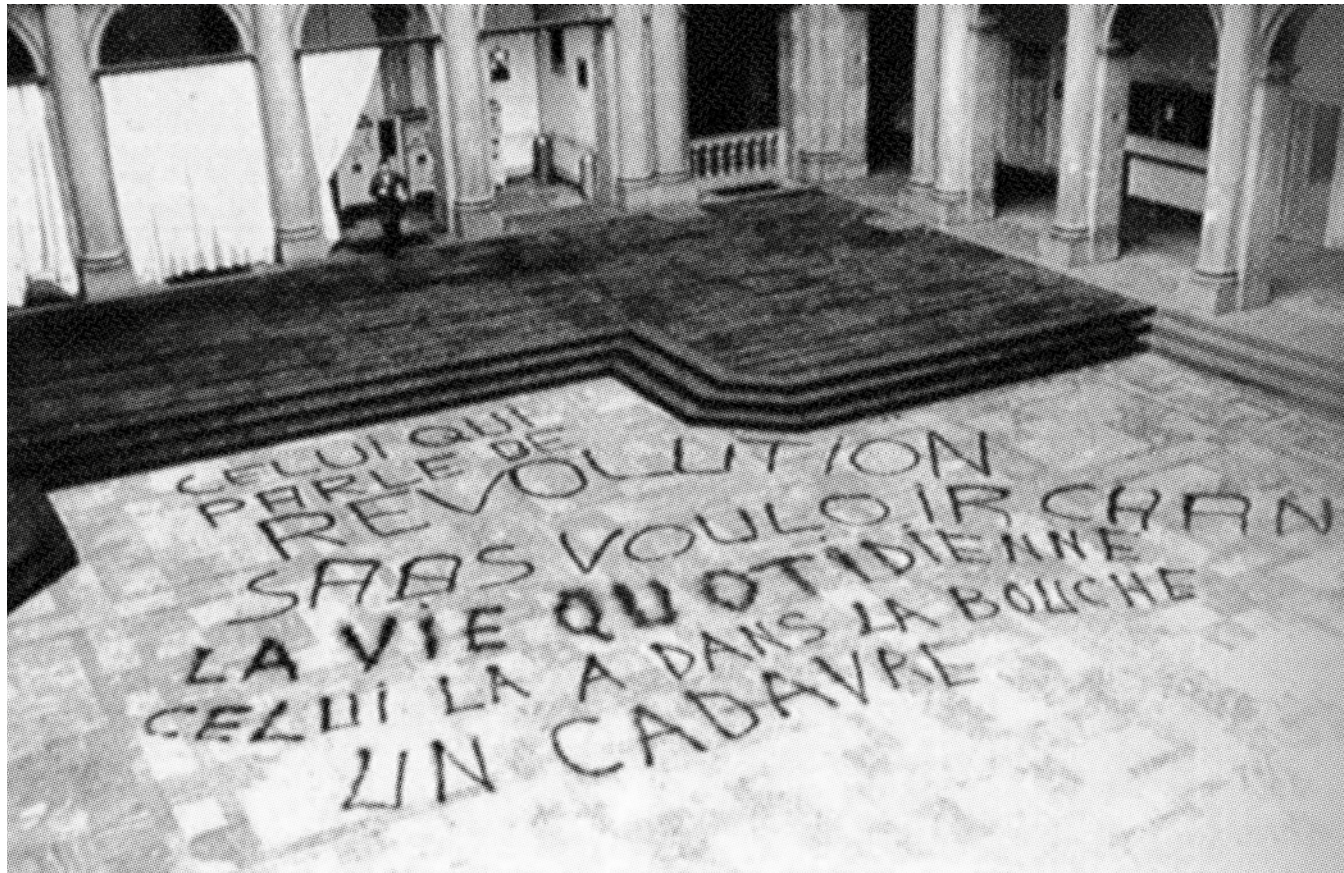 CELUI QUI
PARLE DE
REVOLUTION
SANS VOULOIR CHAN
LA ViE QUOTIDiENNE
CELUi LA A DANS LA BOUCHE
UN CADAVRE